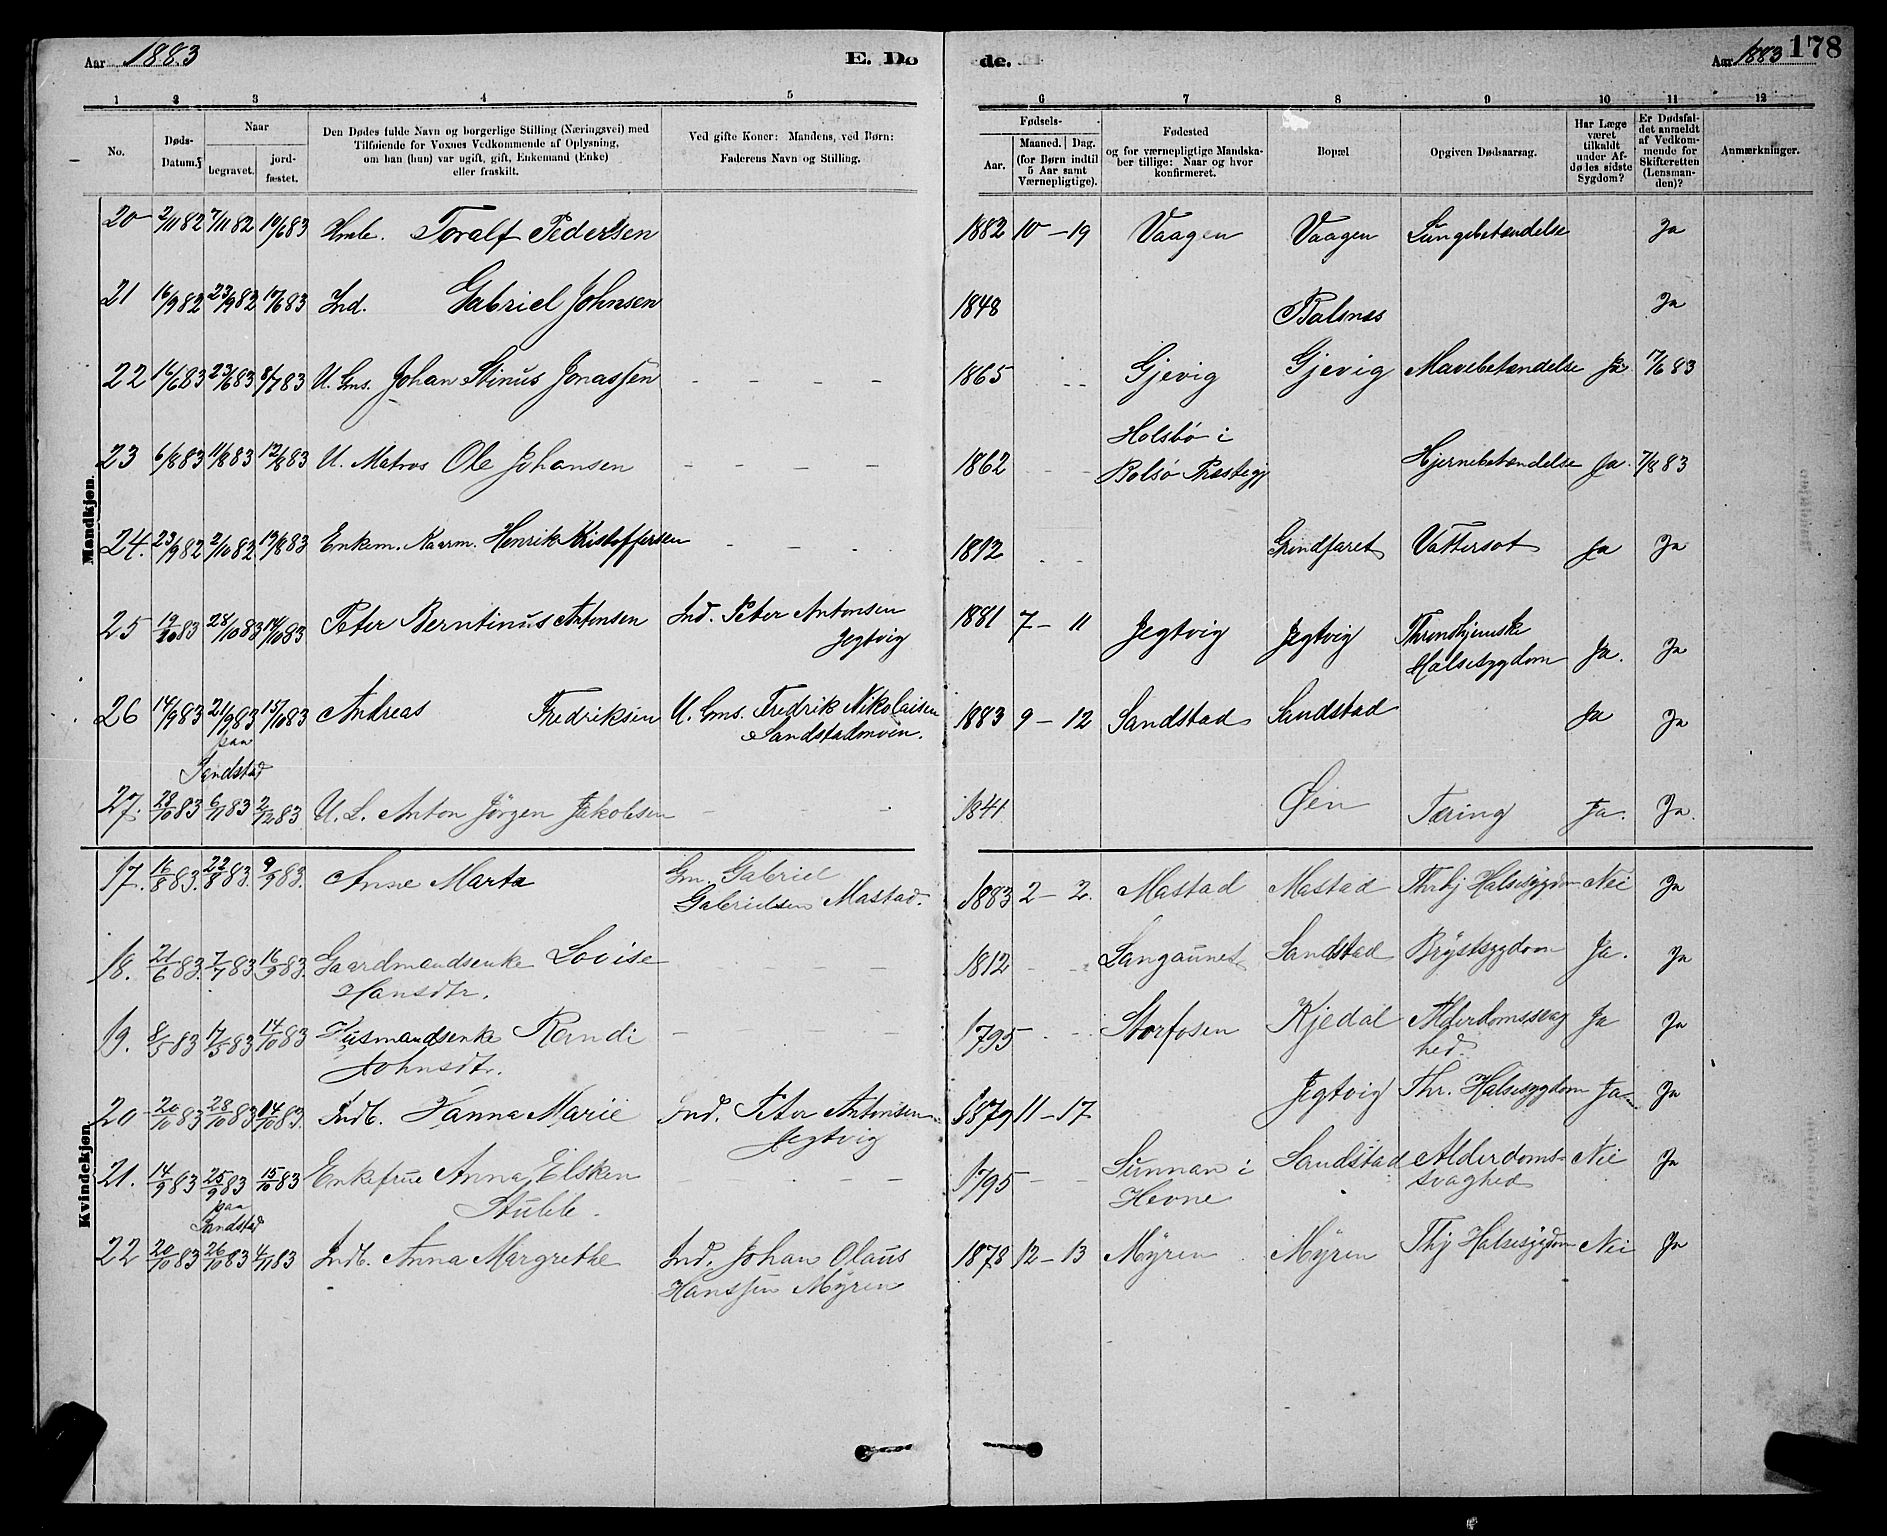 Aar 1883
E. Do
de.
Aar 1883
178
1 2 3 4 5 6 7 8 9 10 11 12
No.
Døds-
Datum.
Naar
begravet.
jord-
fæstet.
Den Dødes fulde Navn og borgerlige Stilling (Næringsvei) med
Tilføiende for Voxnes Vedkommende af Oplysning,
om han (hun) var ugift, gift, Enkemand (Enke)
eller fraskilt.
Ved gifte Koner: Mandens, ved Børn:
Faderens Navn og Stilling.
Fødsels-
Aar.
Maaned. Dag.
(for Børn indtil
5 Aar samt
Værnepligtige).
Fødested
og for værnepligtige Mandska-
ber tillige: Naar og hvor
konfirmeret.
Bopæl.
Opgiven Dødsaarsag.
Har Læge
været
tilkaldt
under Af-
dødes sidste
Sygdom?
Er Dødsfal-
det anmeldt
af Vedkom-
mende for
Skifteretten
(Lensman-
den)?
Anmærkninger.
Mandkjøn.
20 2/11 82 7/11 82 10/6 83 Toralf Pedersen 1882 10-19 Vaagen Vaagen Lungebetændelse Ja
21 16/9 82 23/9 82 10/6 83 Ind. Gabriel Johnsen 1848 Balsnes Ja
22 16/6 83 23/6 83 8/7 83 U. Gms. Johan Stinus Jonassen - - - - 1865 - - Gjevig Gjevig Mavebetændelse Ja 17/6 83
Holsbø i
23 6/8 83 11/8 83 12/8 83 U. Matros Ole Johansen - - - - 1862 - - Bolsø Præstegj Hjernebetændelse Ja. 7/8 83
24. 23/9 82 2/10 82 19/8 83 Enkem. Kaarm. Henrik Kristoffersen - - - 1812 - - Grindfaret Vattersot Ja Ja
25 19/10 83 28/10 83 14/10 83 Peter Berntinus Antonsen Ind. Peter Antonsen 1881 7-11 Jegtvig Jegtvig Throndhjemske
Jegtvig Halsesygdom Ja. Ja
26 14/9 83 21/9 83 15/10 83 Andreas Fredriksen U. Gms. Fredrik Nikolaisen 1883 9-12 Sandstad Sandstad Ja Ja
paa
Sandstad
Sandstadmoen.
27. 28/10 83 6/11 83 2/12 83 U. L. Anton Jörgen Jakobsen - - - 1844 Øien Tæring Ja. Ja.
Kvindekjøn.
17. 16/8 83. 22/8 83. 9/9 83. Anne Marta Gm. Gabriel
Gabrielsen Mastad. 1883 2-2. Mastad Mastad Thrhj Halsesygdom Nei Ja
18. 21/6 83. 7/7 83 16/9 83. Gaardmandsenke Lovise - - - - 1812 - - Langaunet Sandstad Brystsygdom Ja. Ja
Hansdtr.
19. 8/5 83 17/5 83 14/10 83 Husmandsenke Randi - - - 1795 - - Storfosen Kjedal Alderdomssvag Ja Ja
Johnsdtr.
hed.
20 20/10 83 28/10 83 14/10 83. Indb. Hanna Marie Ind. Peter Antonsen 1879 11-17 Jegtvig Thr. Halsesygdom Ja Ja
Jegtvig
21. 14/9 83 25/9 83 15/10 83 Enkefrue Anna Elsken - - - - 1795 - - Sunnan i Sandstad Alderdoms- Nei Ja
paa
Sandstad
Stubbe.
Hevne
svaghed
22 20/10 83 26/10 83 4/11 83 Indb. Anna Margrethe Ind. Johan Olaus 1878 12-13 Myren Myren Thj Halsesygdom Nei Ja
Hanssen Myren